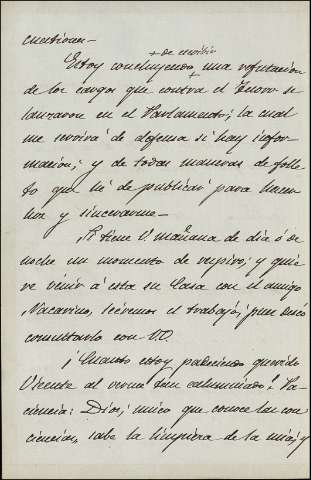 cuestiones –
+ de escribir
Estoy concluyendo + una refutación
de los cargos que contra el Tesoro se
lanzaron en el Parlamento; la cual
me servirá de defensa si hay infor-
macion; y de todas maneras de folle-
to que hé de publicar para hacer
luz y sincerarme –
¡Si tiene V. mañana de dia ó de
noche un momento de respiro; y quie-
re venir á esta su Casa con el amigo
Navarino, leéremos el trabajo; pues deseo
consultarlo con VV.
¡Cuanto estoy padeciendo querido
Vicente al verme tan calumniado! Pa-
ciencia: Dios, único que conoce las con-
ciencias, sabe la limpieza de la mia; y